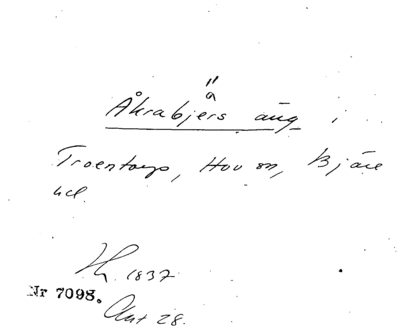 "
a
Åkrabjers äng i
Troentorp, Hov sn, Bjäre
hd.
1837
Nr 7098.
Akt 28.